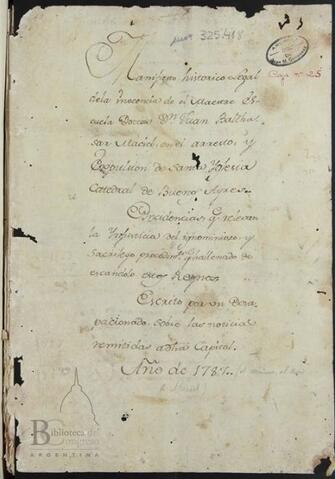 325.418
Caja nº 25
Manifiesto historico-Legal
de la Inocencia de el Maestre Es
cuela Doctor Dn. Juan Baltha
sar Maciel, en el arresto, y
Expulsion de Santa Yglesia
Catedral de Buenos Ayres.
Yncidencias q. relevan
la Injusticia del ignominioso, y
Sacrilego
escandalo Reynos
Escrito por un Desa
pacionado sobre las noticias
remitidas a dha Capital.
Año de 1787.
Biblioteca del
Congreso
ARGENTINA